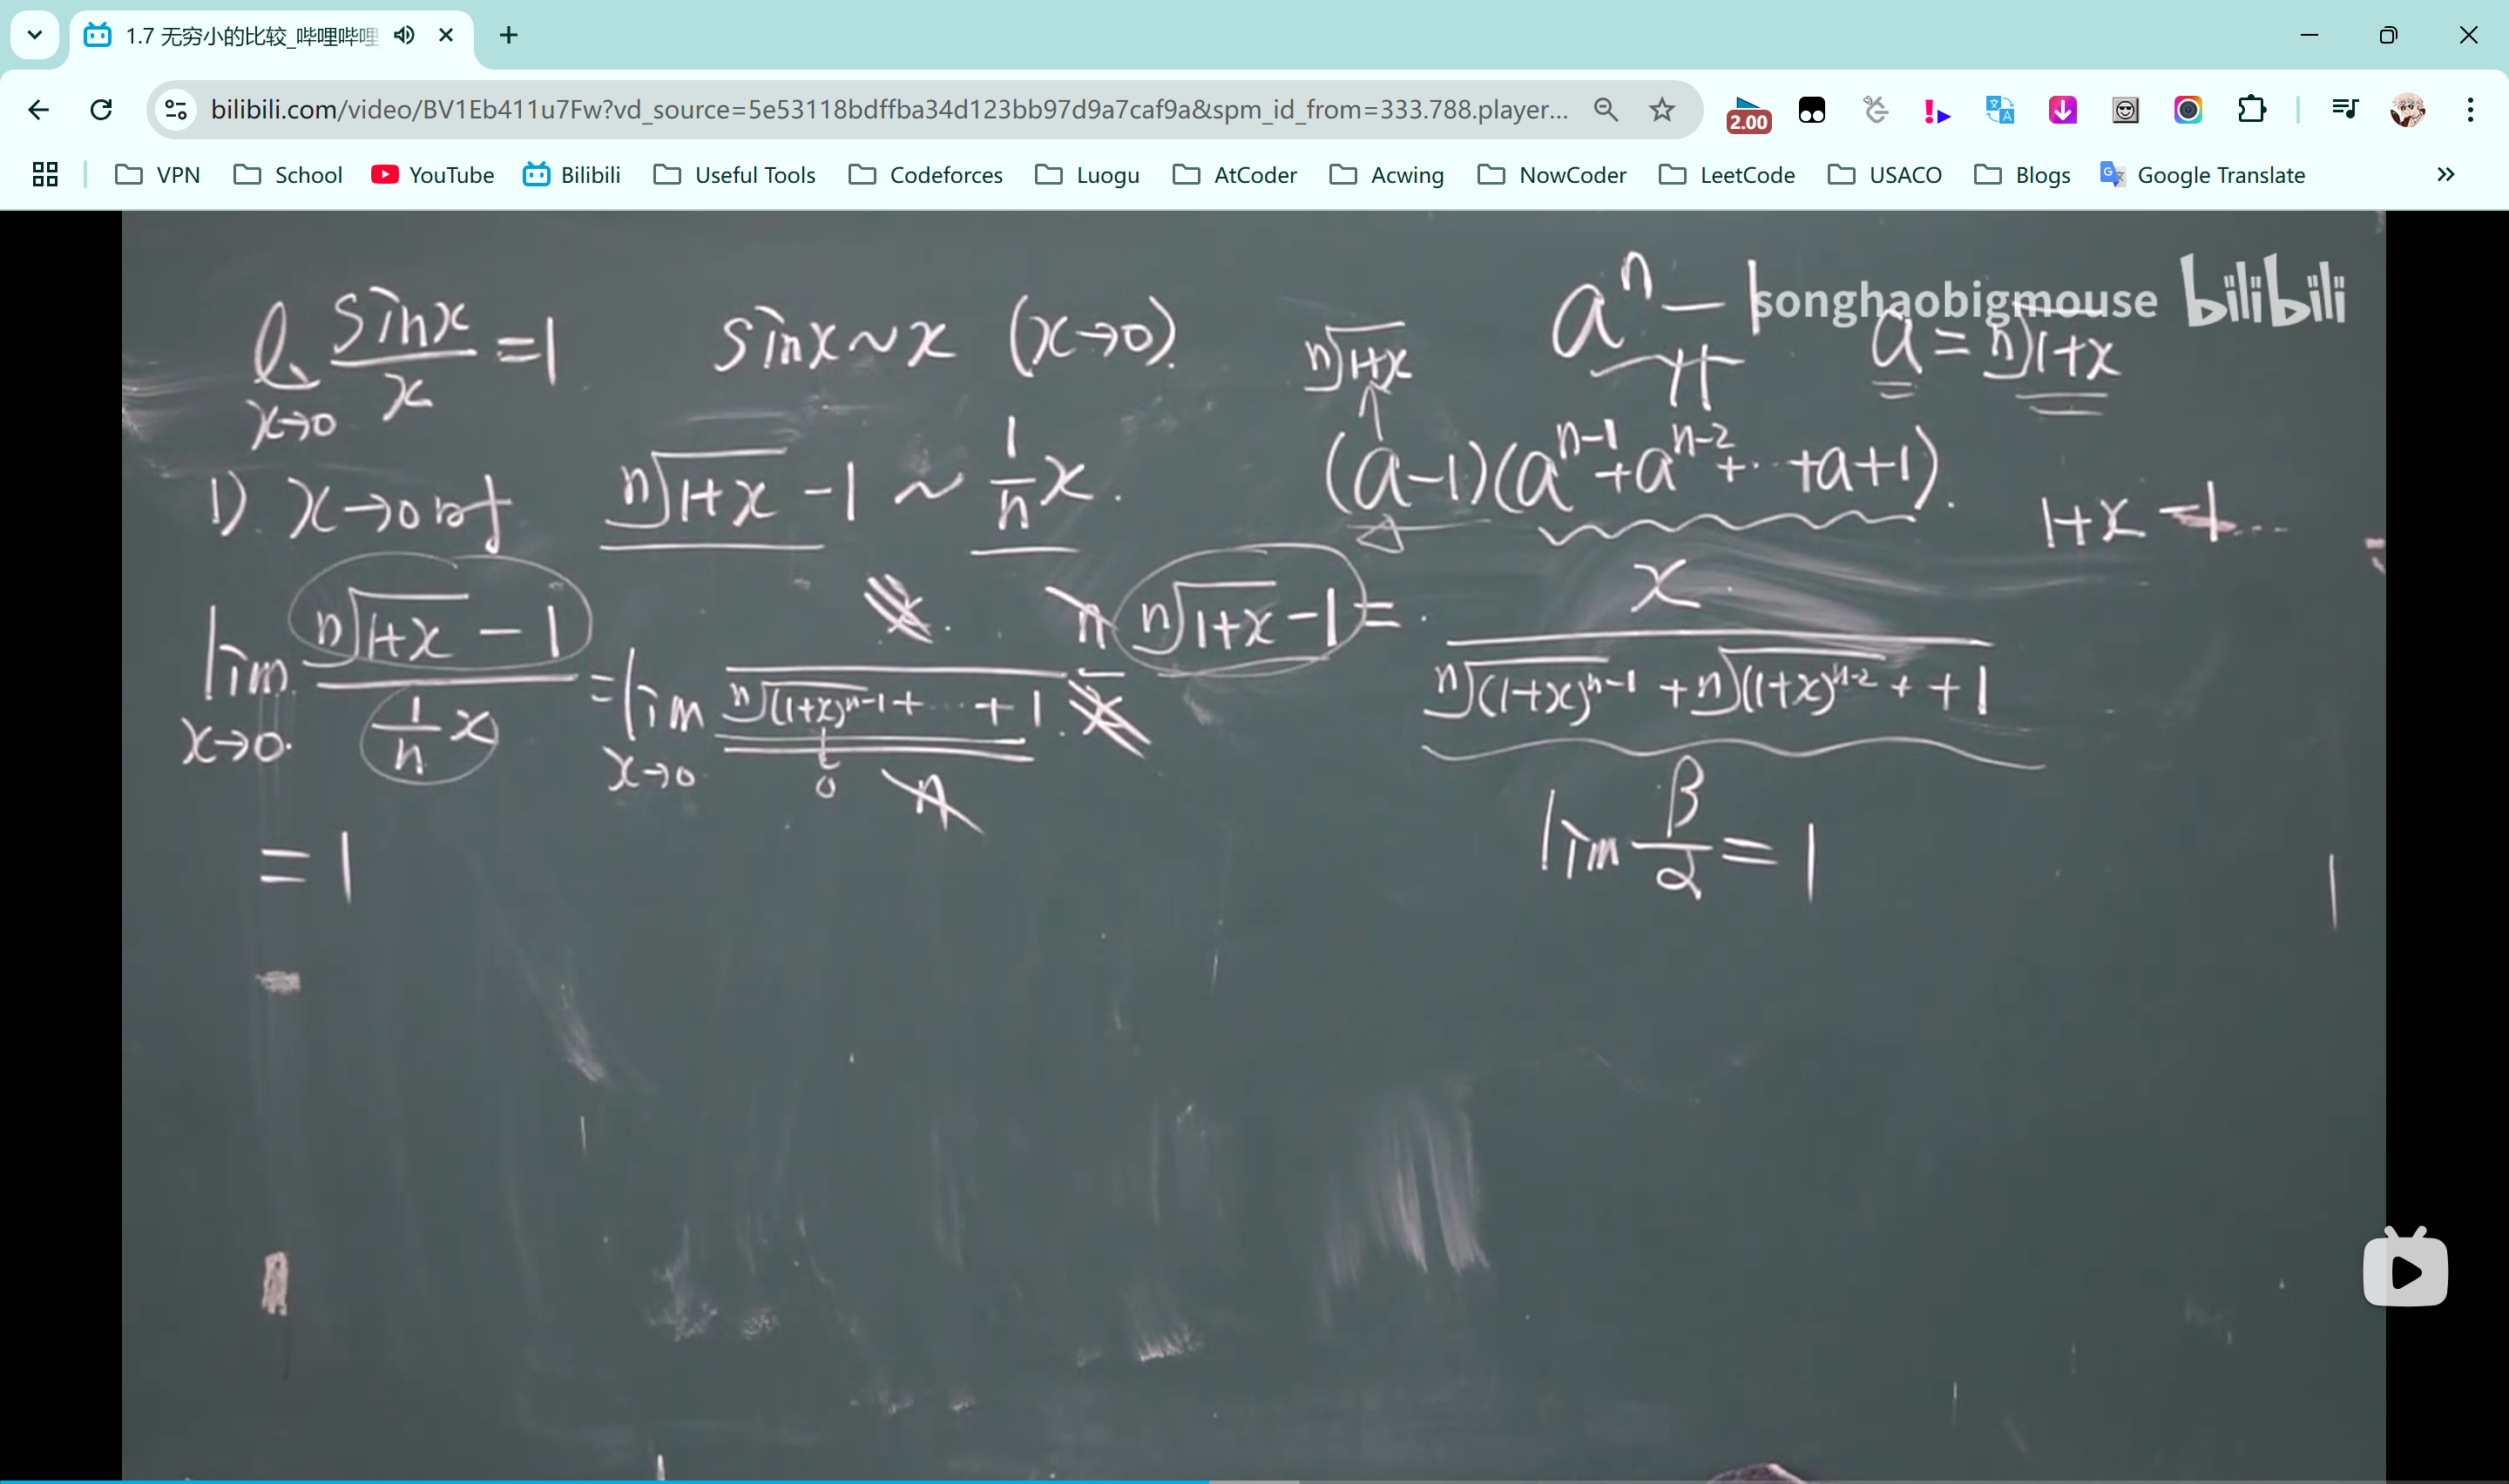 1.7 无穷小的比较_哔哩哔哩
bilibili.com/video/BV1Eb411u7Fw?vd_source=5e53118bdffba34d123bb97d9a7caf9a&spm_id_from=333.788.player...
2.00
VPN School YouTube Bilibili Useful Tools Codeforces Luogu AtCoder Acwing NowCoder LeetCode USACO Blogs Google Translate
songhaobigmouse bilibili
lim_{x→0} sinx/x = 1 sinx ~ x (x→0).
ⁿ√(1+x) aⁿ - 1 a = ⁿ√(1+x)
(a-1)(aⁿ⁻¹+aⁿ⁻²+…+a+1). 1+x - 1
1). x→0时 ⁿ√(1+x) - 1 ~ 1/n x.
lim_{x→0} (ⁿ√(1+x) - 1)/(1/n x) = lim_{x→0} x n/((ⁿ√(1+x)ⁿ⁻¹+…+1) · x)
0 n
ⁿ√(1+x) - 1 = x/(ⁿ√(1+x)ⁿ⁻¹ + ⁿ√(1+x)ⁿ⁻² + + 1)
= 1
lim β/α = 1